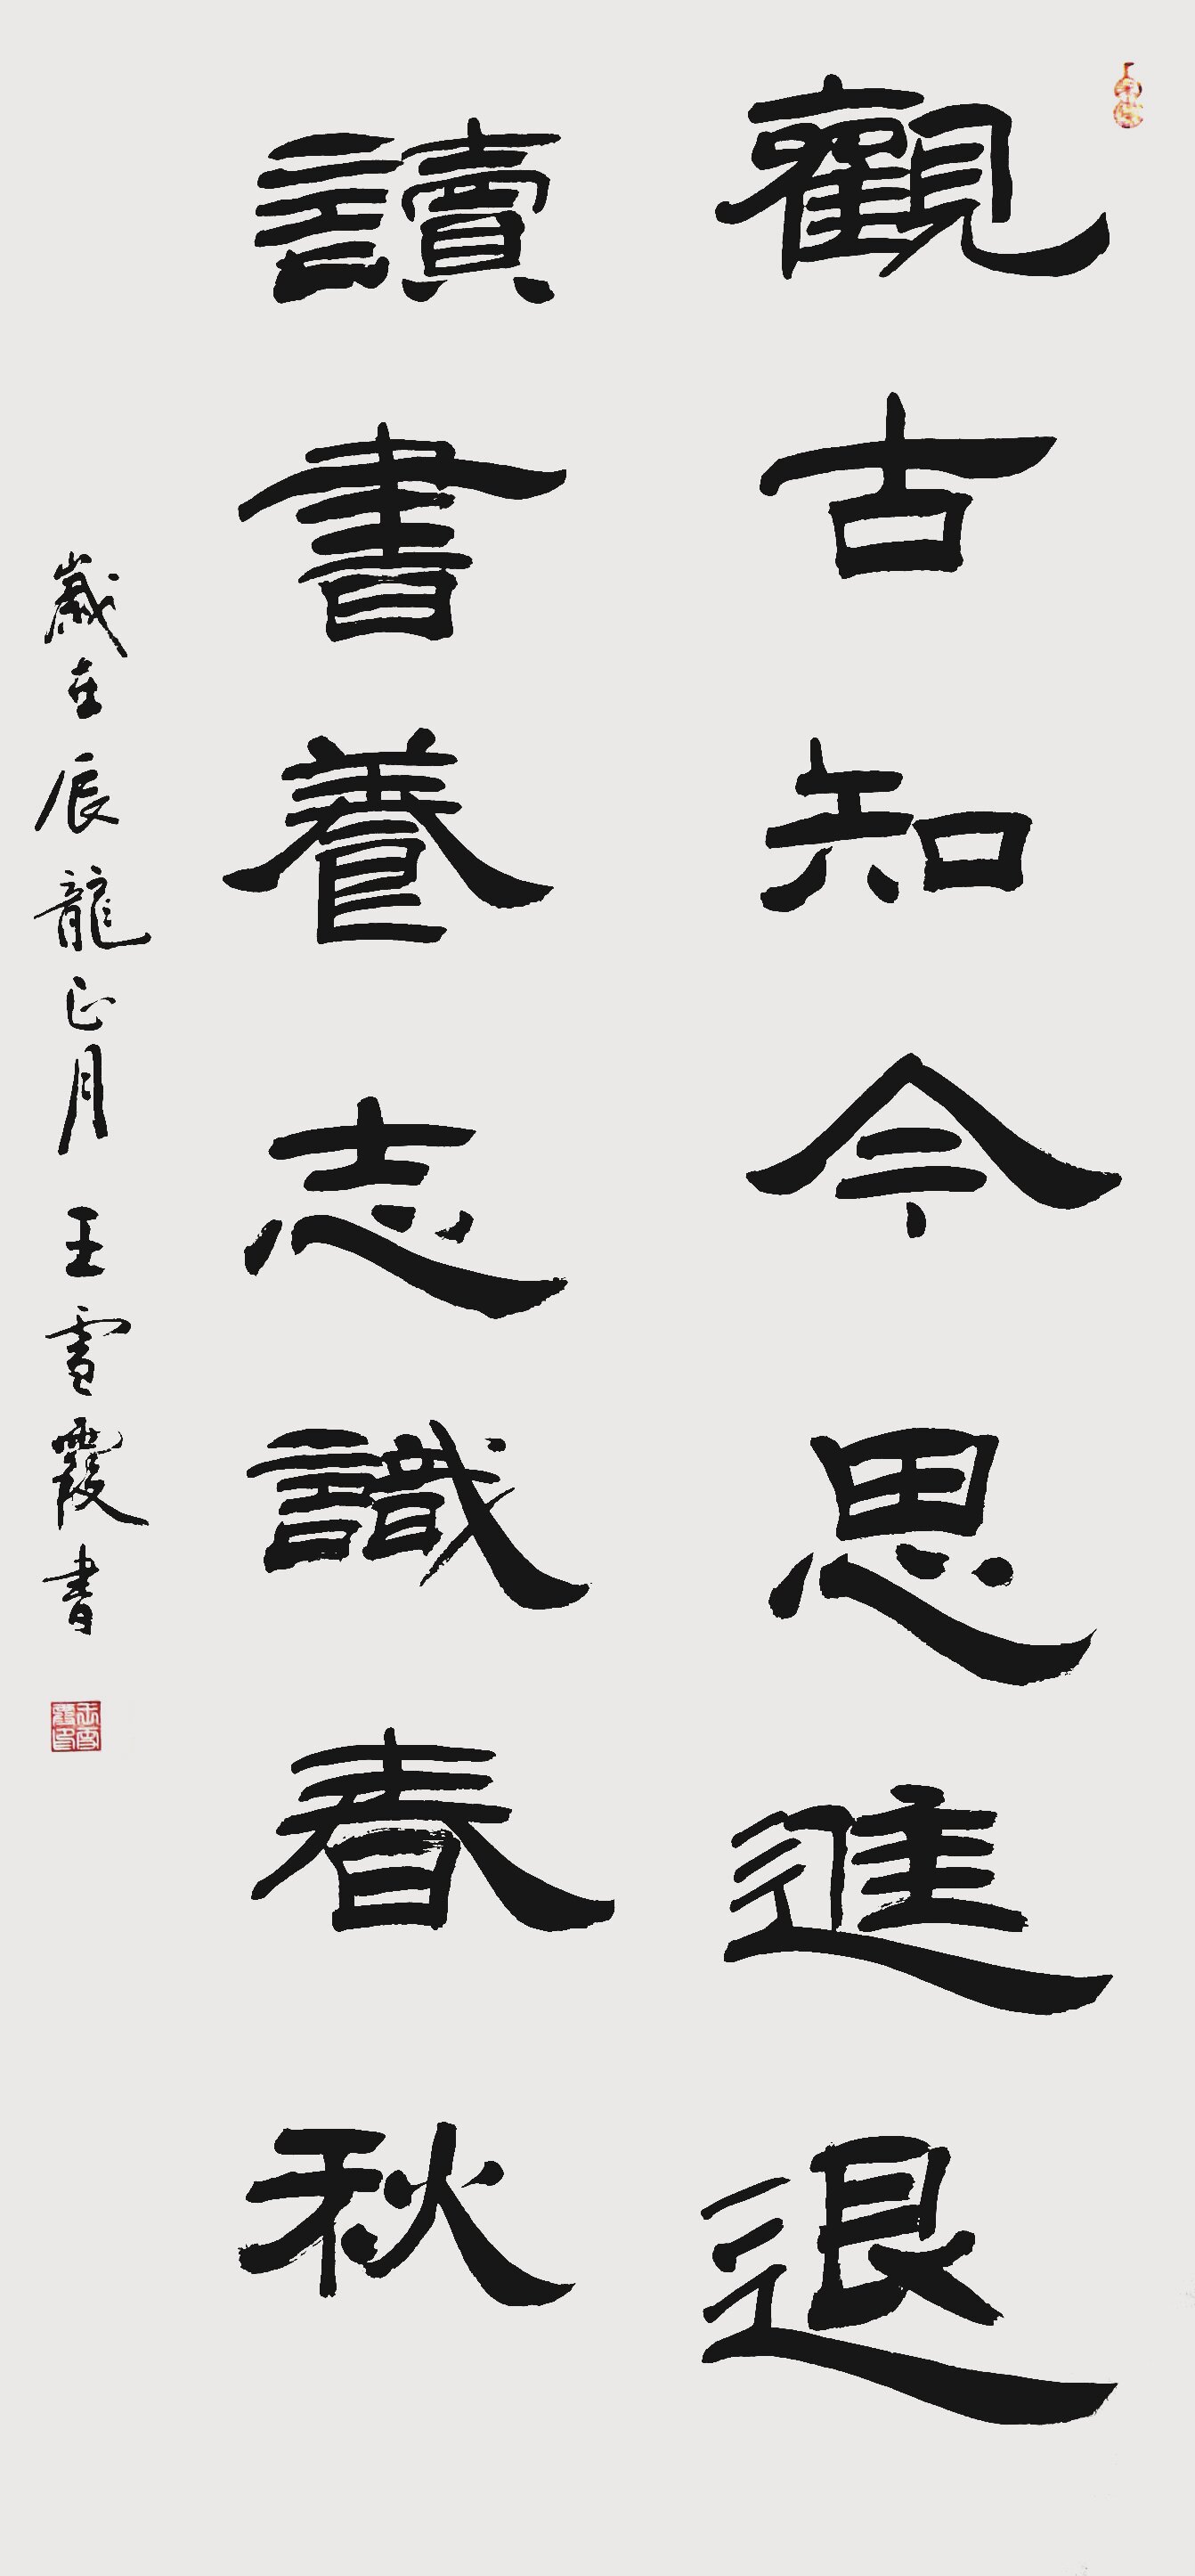 觀古知今思進退
讀書養志識春秋
歲在辰龍正月王雪霞書